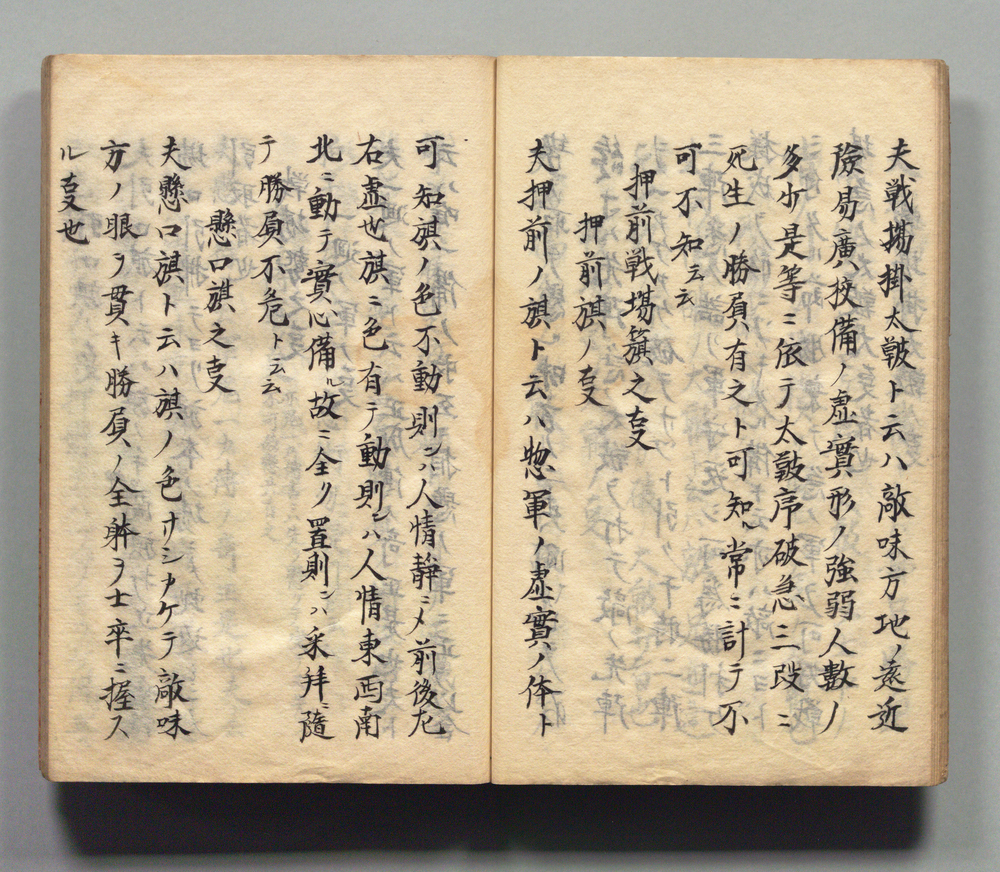 夫戦塲掛太皷ト云ハ敵味方地ノ遠近
険易廣狹備ノ虚實形ノ強弱人数ノ
多少是等ニ依テ太皷序破急三段ニ
死生ノ勝負有之ト可知常ニ計テ不
可不知云云
押前戦塲籏之叓
押前旗ノ叓
夫押前ノ旗ト云ハ惣軍ノ虚實ノ体ト
可知旗ノ色不動則ンハ人情静ニメ前後左
右虚也旗ニ色有テ動則ンハ人情東西南
北ニ動テ實心備ル故ニ全ク置則ンハ采拜ニ随
テ勝負不危ト云云
懸口旗之叓
夫懸口旗ト云ハ旗ノ色ナシナケテ敵味
方ノ眼ヲ貫キ勝負ノ全躰ヲ士卒ニ握ス
ル叓也